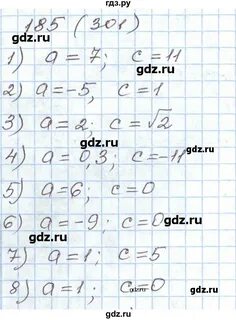 гдз.ру
185 (301)
1) a = 7; c = 11
gdz.ru gdz.ru
2) a = -5; c = 1
3) a = 2; c = √2
gdz.ru gdz.ru
4) a = 0,3; c = -11
gdz.ru gdz.ru
5) a = 6; c = 0
6) a = -9; c = 0
gdz.ru gdz.ru
7) a = 1; c = 5
gdz.ru
8) a = 1; c = 0